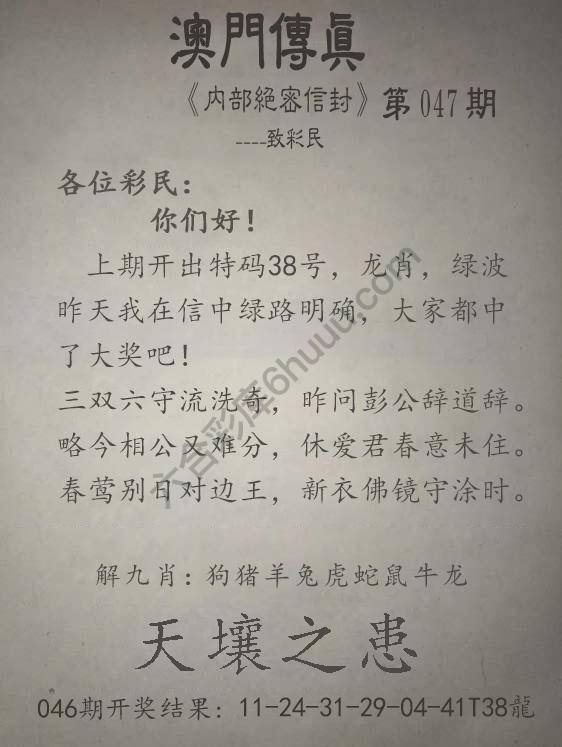 澳門傳眞
《内部絕密信封》第047期
----致彩民
各位彩民：
你们好！
上期开出特码38号，龙肖，绿波
昨天我在信中绿路明确，大家都中
了大奖吧！
三双六守流洗奇，昨问彭公辞道辞。
略今相公又难分，休爱君春意未住。
春莺别日对边王，新衣佛镜守涂时。
解九肖：狗猪羊兔虎蛇鼠牛龙
天壤之患
046期开奖结果：11-24-31-29-04-41T38龍
六合彩库6huuu.com